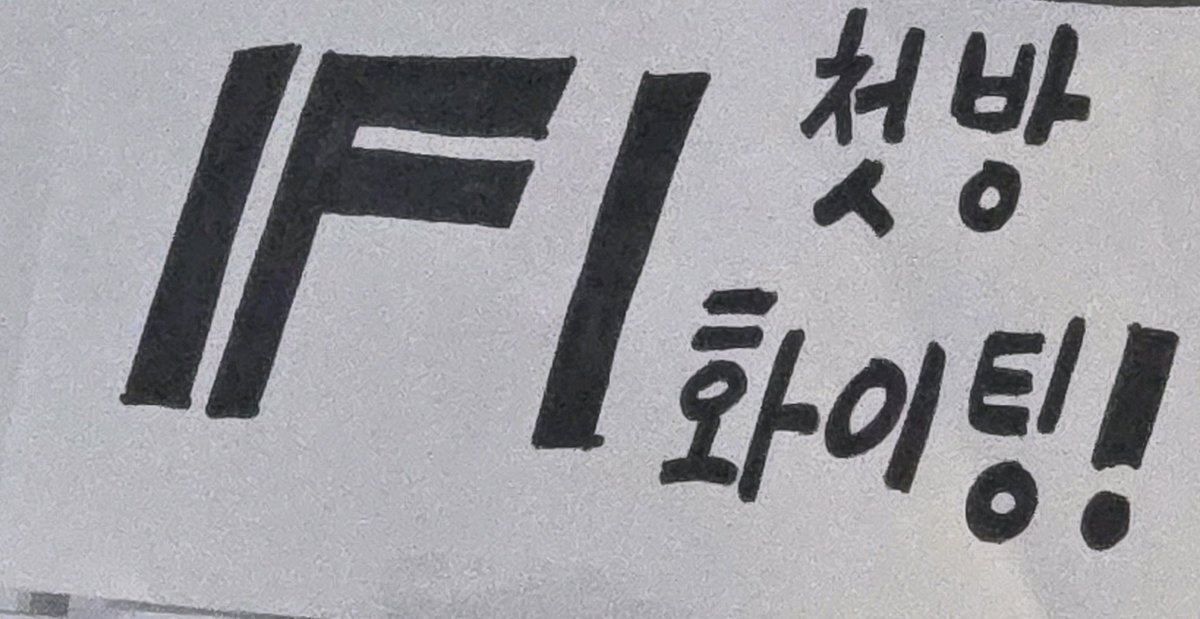 IFI 첫방
화이팅!